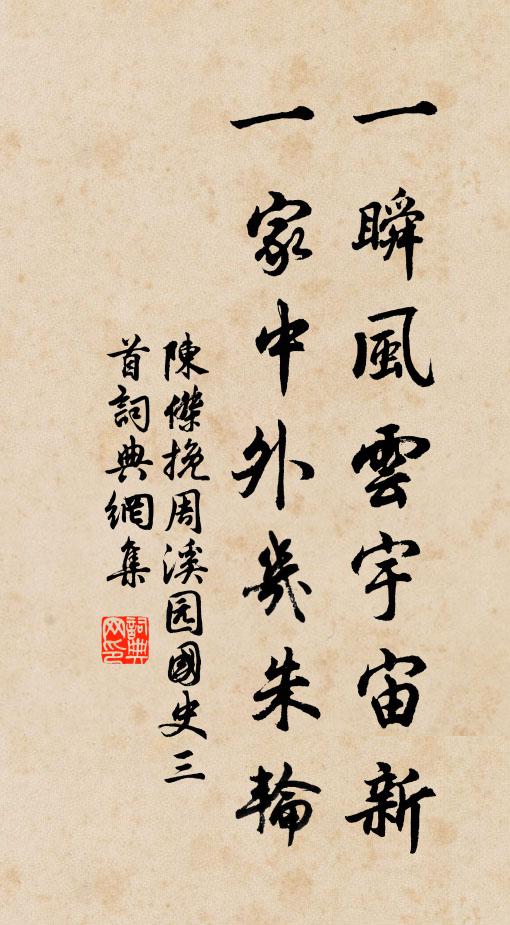 一瞬風雲宇宙新
一家中外幾朱輪
陳傑挽周溪园國史三
首詞典網集
詞典網印